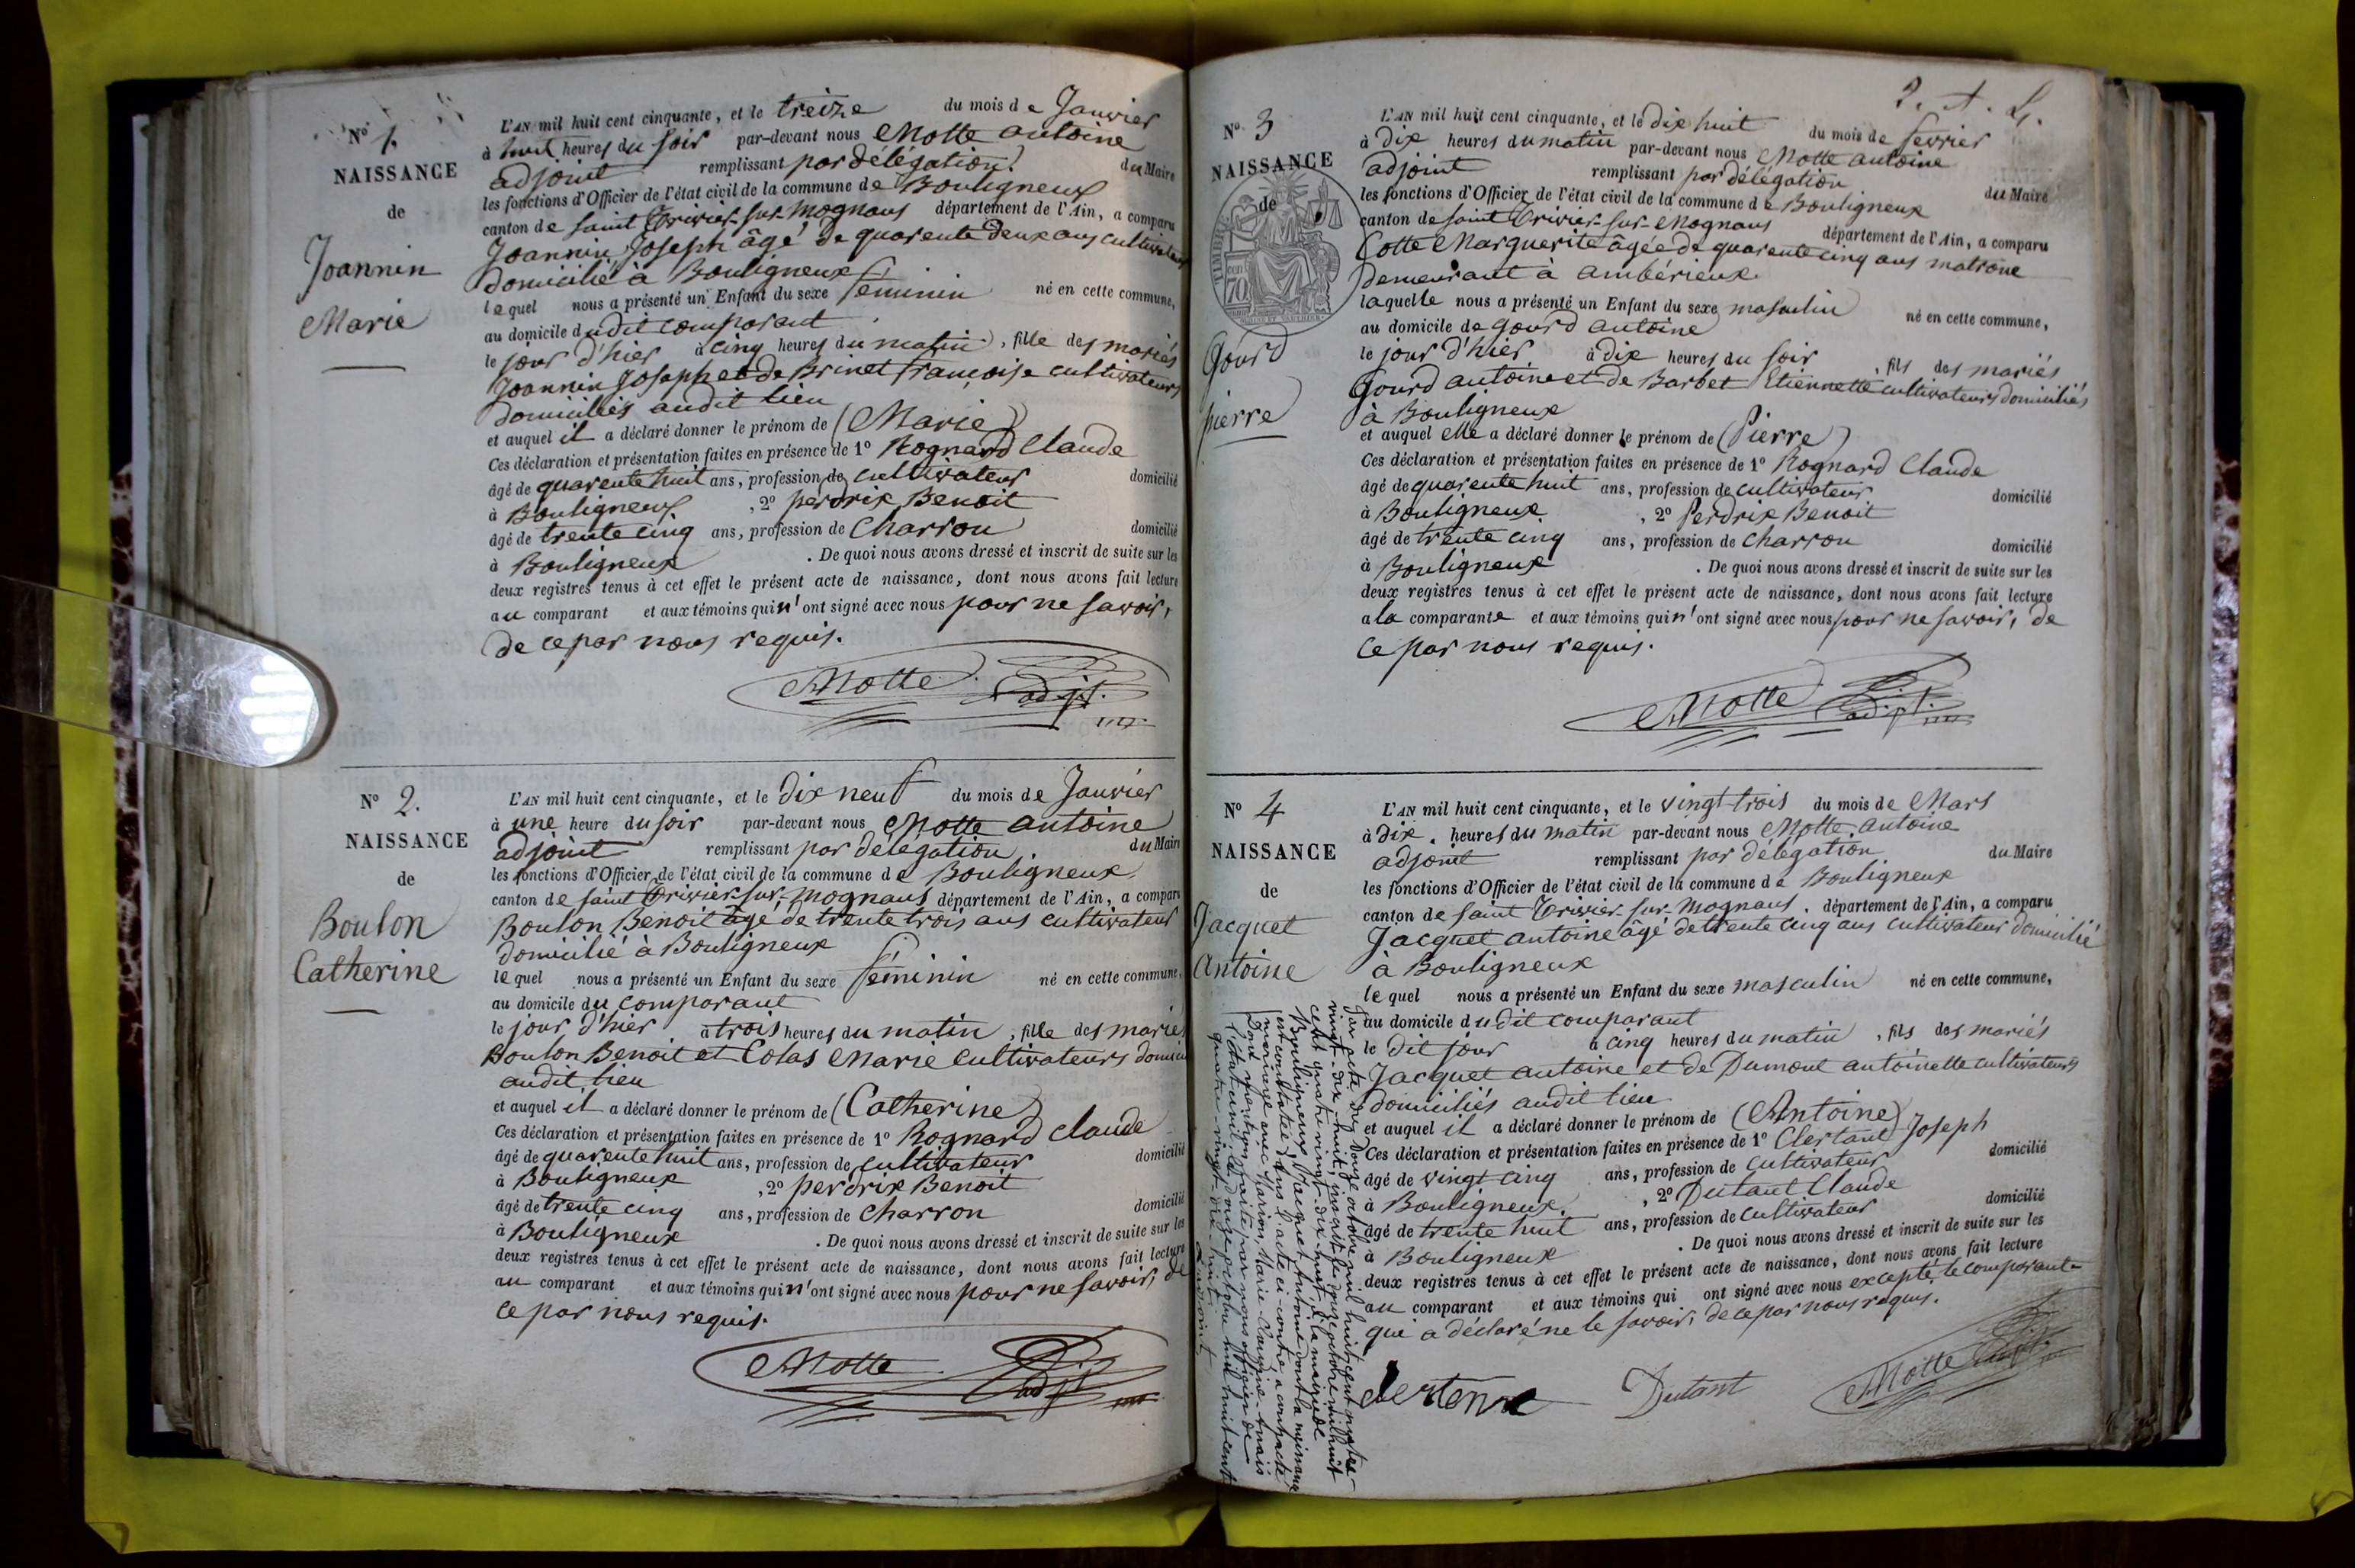 N° 1.
NAISSANCE
de
Joannin
Marie
L'AN mil huit cent cinquante, et le treize du mois de Janvier
à huit heures du soir par-devant nous Motte antoine
adjoint remplissant par délégation du Maire
les fonctions d'Officier de l'état civil de la commune de Bouligneux
canton de saint Trivier-sur-Mognans département de l'Ain, a comparu
Joannin Joseph âgé de quarente deux ans cultivateur
domicilié à Bouligneux
lequel nous a présenté un Enfant du sexe féminin né en cette commune,
au domicile dudit comparant
le jour d'hier à cinq heures du matin, fille des mariés
Joannin Joseph et de Brinet françoise cultivateurs
domiciliés audit lieu
et auquel il a déclaré donner le prénom de (Marie)
Ces déclaration et présentation faites en présence de 1° Rognard Claude
âgé de quarente huit ans, profession de cultivateur domicilié
à Bouligneux, 2° perdrix Benoit
âgé de trente cinq ans, profession de Charron domicilié
à Bouligneux. De quoi nous avons dressé et inscrit de suite sur les
deux registres tenus à cet effet le présent acte de naissance, dont nous avons fait lecture
au comparant et aux témoins qui n'ont signé avec nous pour ne savoir,
de ce par nous requis.
Motte adjt.
N° 2.
NAISSANCE
de
Boulon
Catherine
L'AN mil huit cent cinquante, et le dix neuf du mois de Janvier
à une heure du soir par-devant nous Motte antoine
adjoint remplissant par délégation du Maire
les fonctions d'Officier de l'état civil de la commune de Bouligneux
canton de saint Trivier-sur-Mognans département de l'Ain, a comparu
Boulon Benoit âgé de trente trois ans cultivateur
domicilié à Bouligneux
lequel nous a présenté un Enfant du sexe féminin né en cette commune,
au domicile du comparant
le jour d'hier à trois heures du matin, fille des mariés
Boulon Benoit et Colas Marie cultivateurs
audit lieu
et auquel il a déclaré donner le prénom de (Catherine)
Ces déclaration et présentation faites en présence de 1° Rognard Claude
âgé de quarente huit ans, profession de cultivateur domicilié
à Bouligneux, 2° perdrix Benoit
âgé de trente cinq ans, profession de Charron domicilié
à Bouligneux. De quoi nous avons dressé et inscrit de suite sur les
deux registres tenus à cet effet le présent acte de naissance, dont nous avons fait lecture
au comparant et aux témoins qui n'ont signé avec nous pour ne savoir, de
ce par nous requis.
Motte adjt
2. A. L.
N° 3
NAISSANCE
de
Gourd
pierre
L'AN mil huit cent cinquante, et le dix huit du mois de fevrier
à dix heures du matin par-devant nous Motte antoine
adjoint remplissant par délégation du Maire
les fonctions d'Officier de l'état civil de la commune de Bouligneux
canton de saint Trivier-sur-Mognans département de l'Ain, a comparu
Cotte Marguerite âgée de quarente cinq ans matrone
demeurant à ambérieux
laquelle nous a présenté un Enfant du sexe masculin né en cette commune,
au domicile de gourd antoine
le jour d'hier à dix heures du soir, fils des mariés
Gourd antoine et de Barbet Etiennette cultivateurs domiciliés
à Bouligneux
et auquel elle a déclaré donner le prénom de (Pierre)
Ces déclaration et présentation faites en présence de 1° Rognard Claude
âgé de quarente huit ans, profession de cultivateur domicilié
à Bouligneux, 2° Perdrix Benoit
âgé de trente cinq ans, profession de charron domicilié
à Bouligneux. De quoi nous avons dressé et inscrit de suite sur les
deux registres tenus à cet effet le présent acte de naissance, dont nous avons fait lecture
a la comparante et aux témoins qui n'ont signé avec nous pour ne savoir, de
ce par nous requis.
Motte adjt.
N° 4
NAISSANCE
de
Jacquet
Antoine
L'AN mil huit cent cinquante, et le vingt-trois du mois de Mars
à dix heures du matin par-devant nous Motte antoine
adjoint remplissant par délégation du Maire
les fonctions d'Officier de l'état civil de la commune de Bouligneux
canton de saint Trivier-sur-Mognans, département de l'Ain, a comparu
Jacquet antoine âgé de trente cinq ans cultivateur domicilié
à Bouligneux
lequel nous a présenté un Enfant du sexe masculin né en cette commune,
au domicile dudit comparant
le dit jour à cinq heures du matin, fils des mariés
Jacquet antoine et de Dumont antoinette cultivateurs
domiciliés audit lieu
et auquel il a déclaré donner le prénom de (Antoine)
Ces déclaration et présentation faites en présence de 1° Clertant Joseph
âgé de vingt cinq ans, profession de cultivateur domicilié
à Bouligneux, 2° Dutant Claude
âgé de trente huit ans, profession de cultivateur domicilié
à Bouligneux. De quoi nous avons dressé et inscrit de suite sur les
deux registres tenus à cet effet le présent acte de naissance, dont nous avons fait lecture
au comparant et aux témoins qui ont signé avec nous excepté le comparant
qui a déclaré ne le savoir, de ce par nous requis.
Dutant Motte
Par acte du douze octobre mil huit cent quatre-
vingt-dix-huit, inscrit le douze octobre mil huit
cent quatre vingt-dix-huit, à la mairie de
Bouligneux, Jacquet Antoine dont la naissance
est constatée dans l'acte ci-contre, a contracté
mariage avec Marion, Marie
Dont mention faite par nous officier de
l'état civil le douze octobre mil huit cent
quatre-vingt-dix-huit.